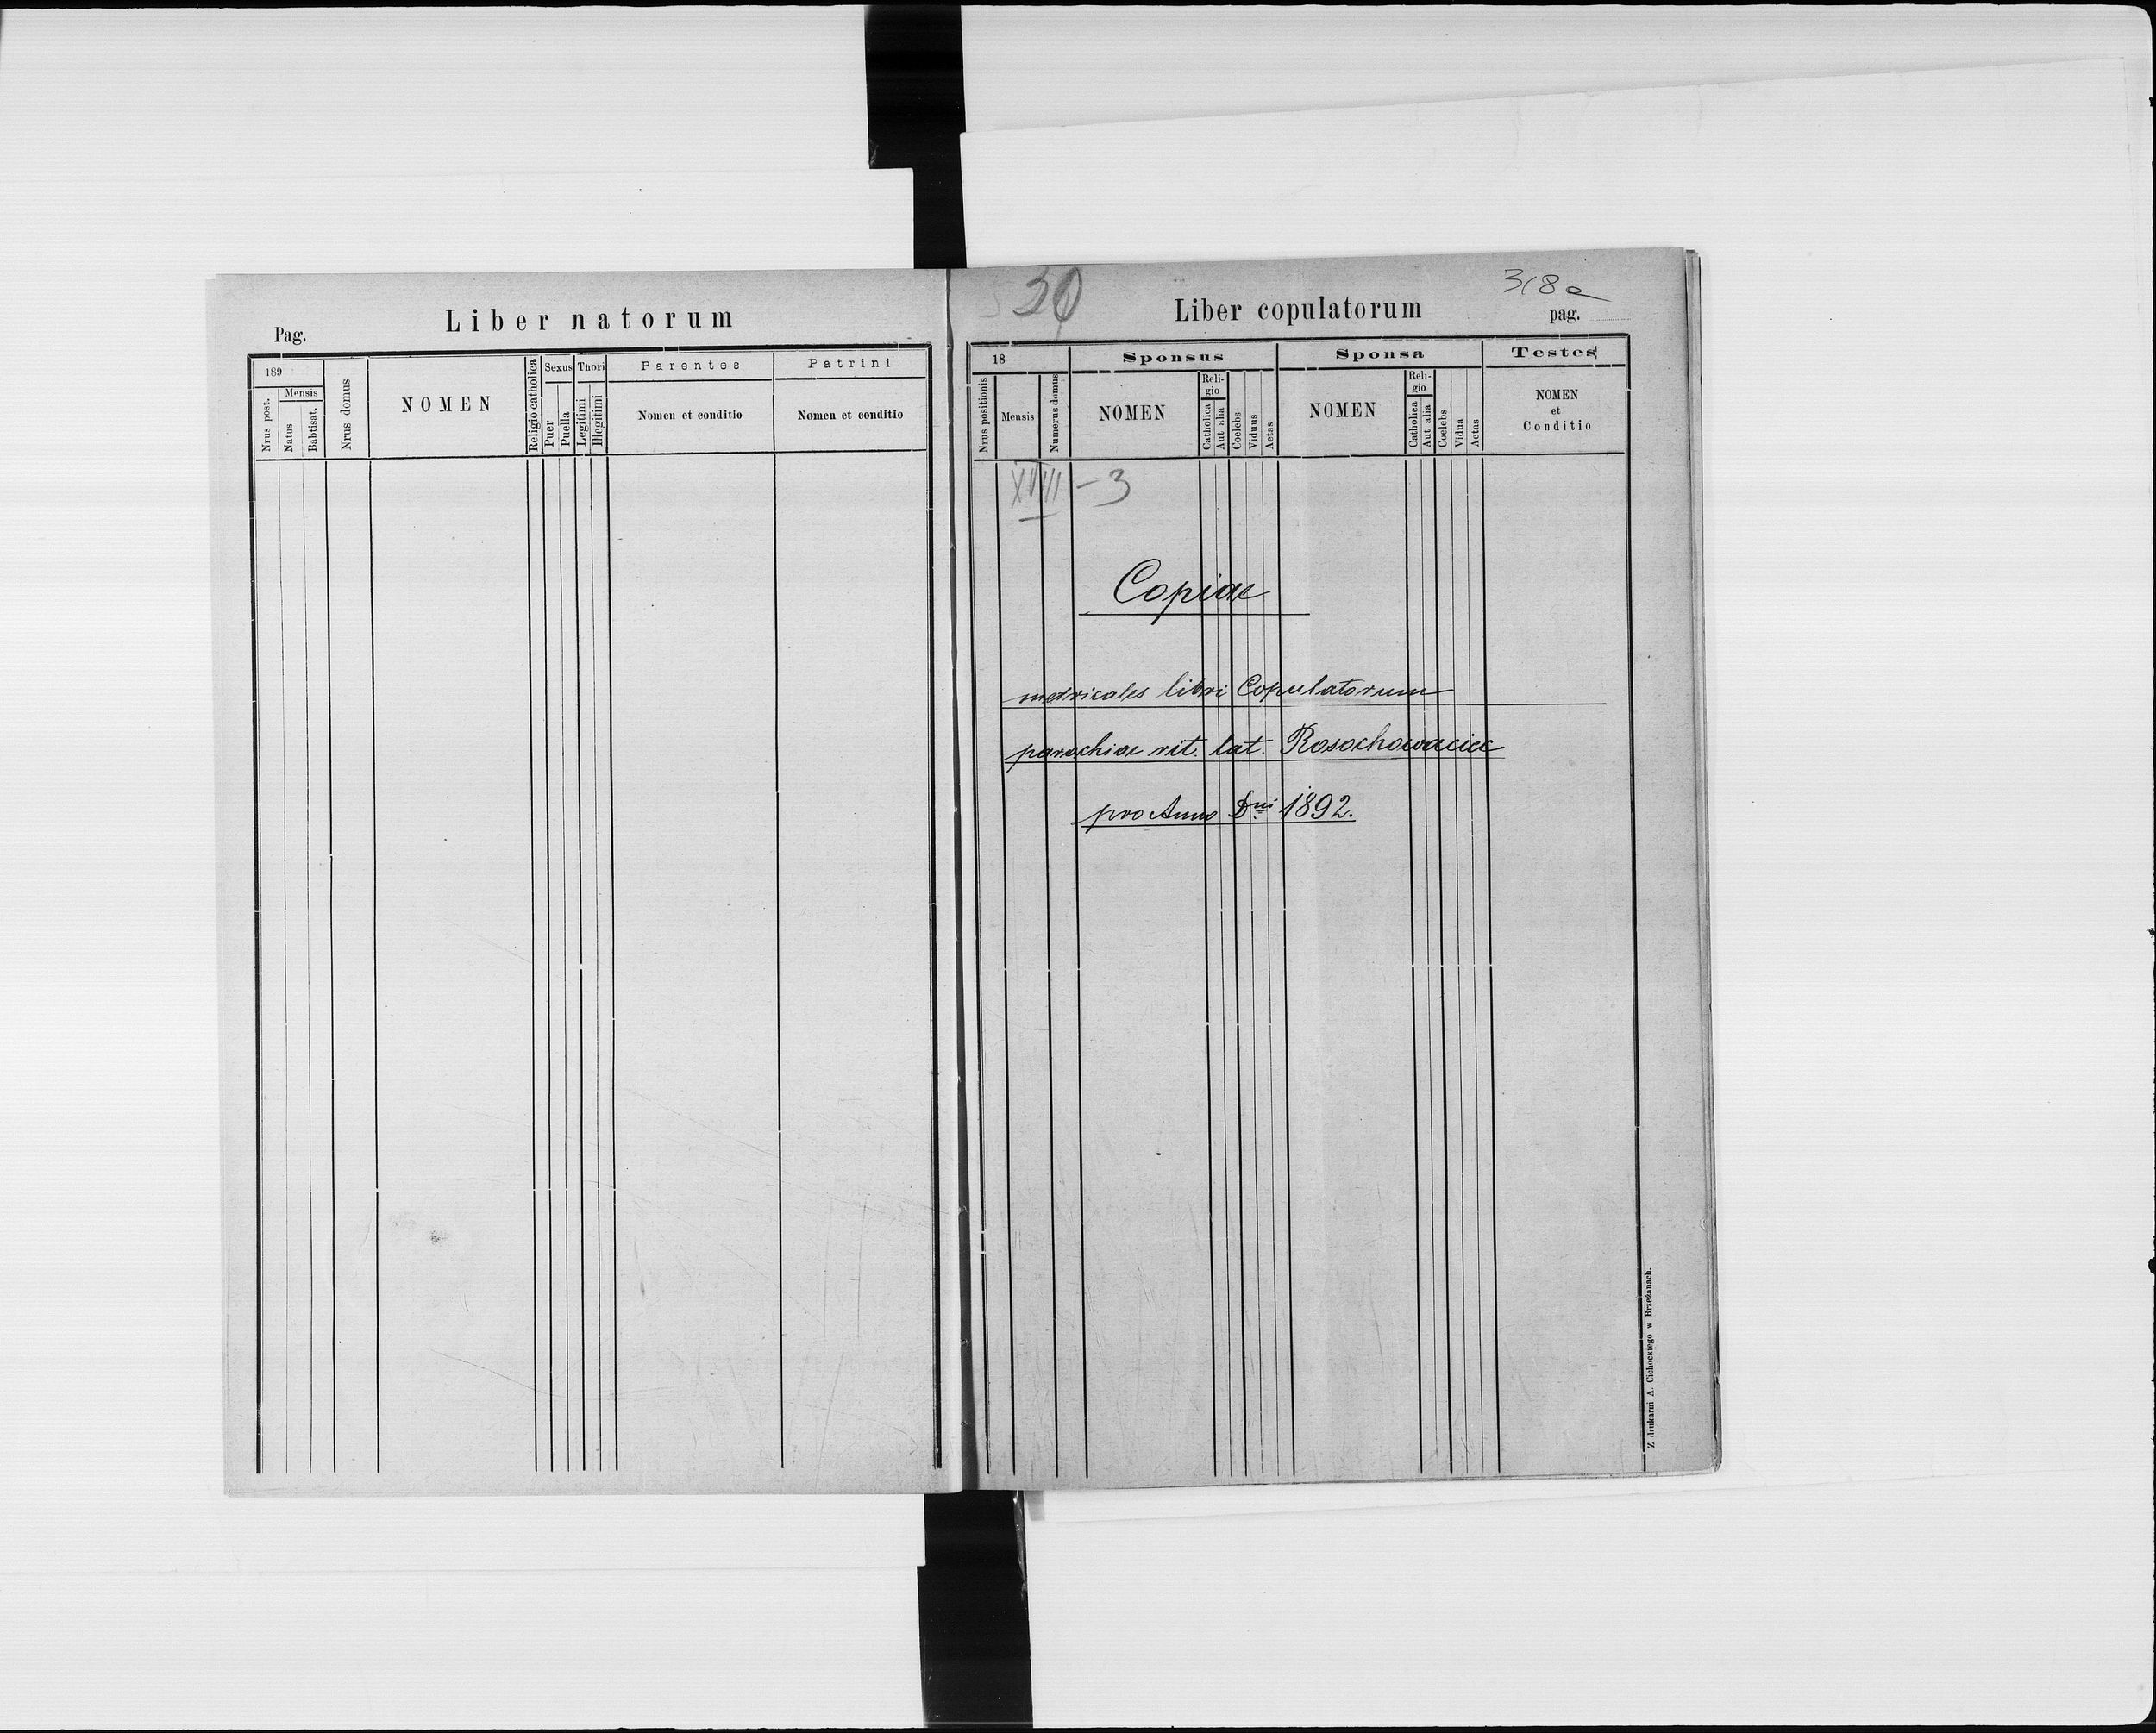 Liber natorum
Pag.
189
Mensis
Nrus post.
Natus
Babtisat.
Nrus domus
NOMEN
Religio catholica
Sexus
Puer
Puella
Thori
Legitimi
Illegitimi
Parentes
Nomen et conditio
Patrini
Nomen et conditio
30
318a
Liber copulatorum
pag.
18
Nrus positionis
Mensis
Numerus domus
Sponsus
NOMEN
Reli-
gio
Catholica
Aut alia
Coelebs
Viduus
Aetas
Sponsa
NOMEN
Reli-
gio
Catholica
Aut alia
Coelebs
Vidua
Aetas
Testes
NOMEN
et
Conditio
XVIII - 3
Copiae
metricales libri Copulatorum
parochiae rit. lat. Rosochowaciec
pro Anno Dni 1892.
Z drukarni A. Cichockiego w Brzeżanach.